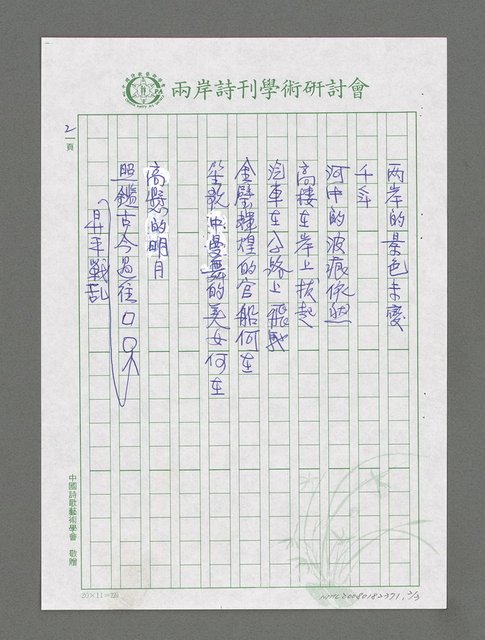 兩岸詩刊學術研討會
2
頁
兩岸的景色未變
千年
河中的波痕依然
高樓在岸上拔起
汽車在公路上飛馳
金璧輝煌的官船何在
笙歌中曼舞的美女何在
高懸的明月
照鑑古今過往
昇平戰亂
中國詩歌藝術學會 敬贈
20×11=220
NMTL20080182371, 2/3